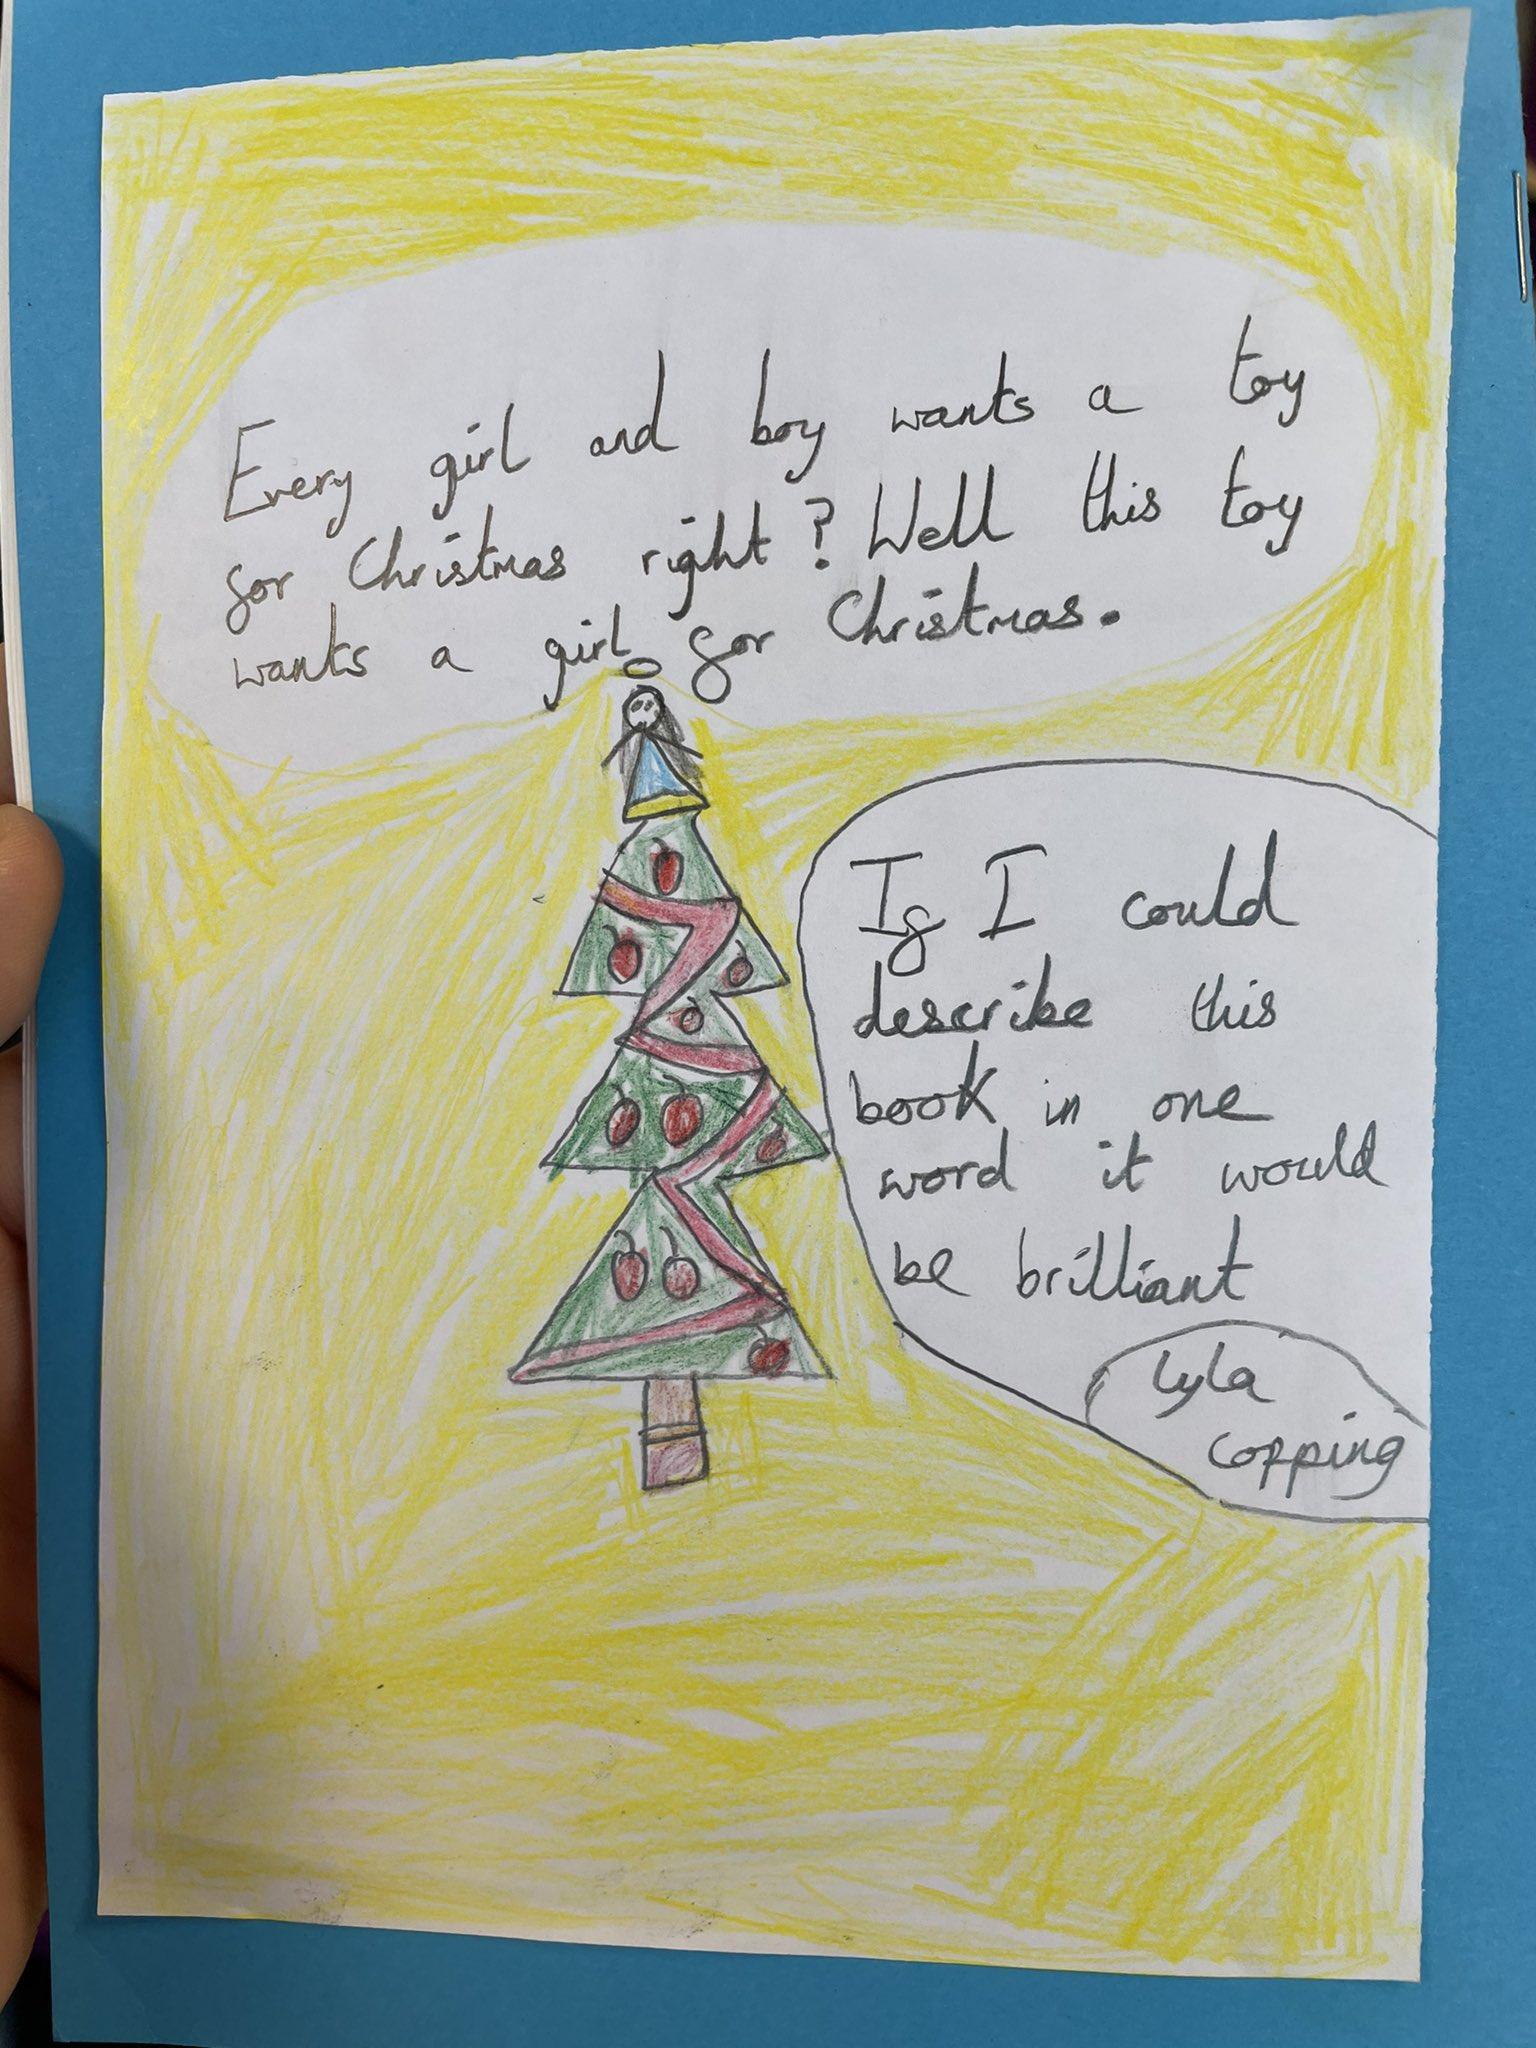 Every girl and boy wants a toy
for Christmas right? Well this toy
wants a girl for Christmas.
If I could
describe this
book in one
word it would
be brilliant
Lyla
copping